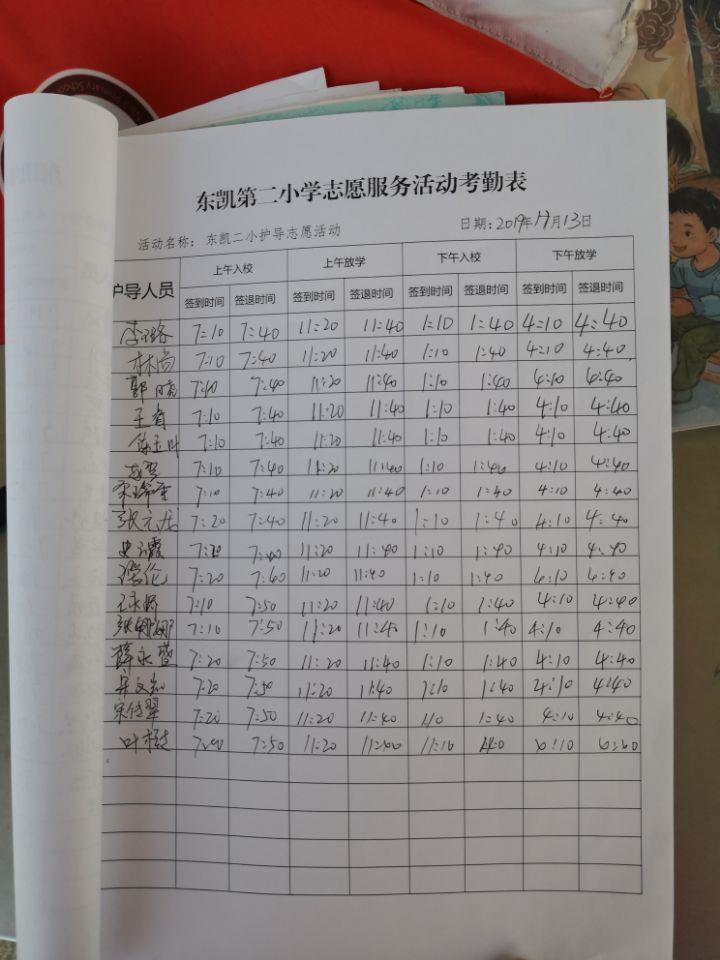 东凯第二小学志愿服务活动考勤表
活动名称：东凯二小护导志愿活动 日期：2019年11月13日
护导人员 上午入校 上午放学 下午入校 下午放学
签到时间 签退时间 签到时间 签退时间 签到时间 签退时间 签到时间 签退时间
7:10 7:40 11:20 11:40 1:10 1:40 4:10 4:40
林尚 7:10 7:40 11:20 11:40 1:10 1:40 4:10 4:40
郭晴 7:10 7:40 11:20 11:40 1:10 1:40 4:10 4:40
王青 7:10 7:40 11:20 11:40 1:10 1:40 4:10 4:40
陈玉叶 7:10 7:40 11:20 11:40 1:10 1:40 4:10 4:40
7:10 7:40 11:20 11:40 1:10 1:40 4:10 4:40
7:10 7:40 11:20 11:40 1:10 1:40 4:10 4:40
7:20 7:40 11:20 11:40 1:10 1:40 4:10 4:40
11:20 11:40 1:10 1:40 4:10 4:40
7:20 11:20 11:40 1:10 1:40
7:10 7:50 11:20 11:40 1:10 1:40 4:10 4:40
张娜娜 7:10 7:50 11:20 11:40 1:10 1:40 4:10 4:40
薛永盛 7:20 7:50 11:20 11:40 1:10 1:40 4:10 4:40
7:20 7:50 11:20 11:40 1:10 1:40 4:10 4:40
宋传翠 7:20 7:50 11:20 11:40 1:40 4:10 4:40
7:50 11:20